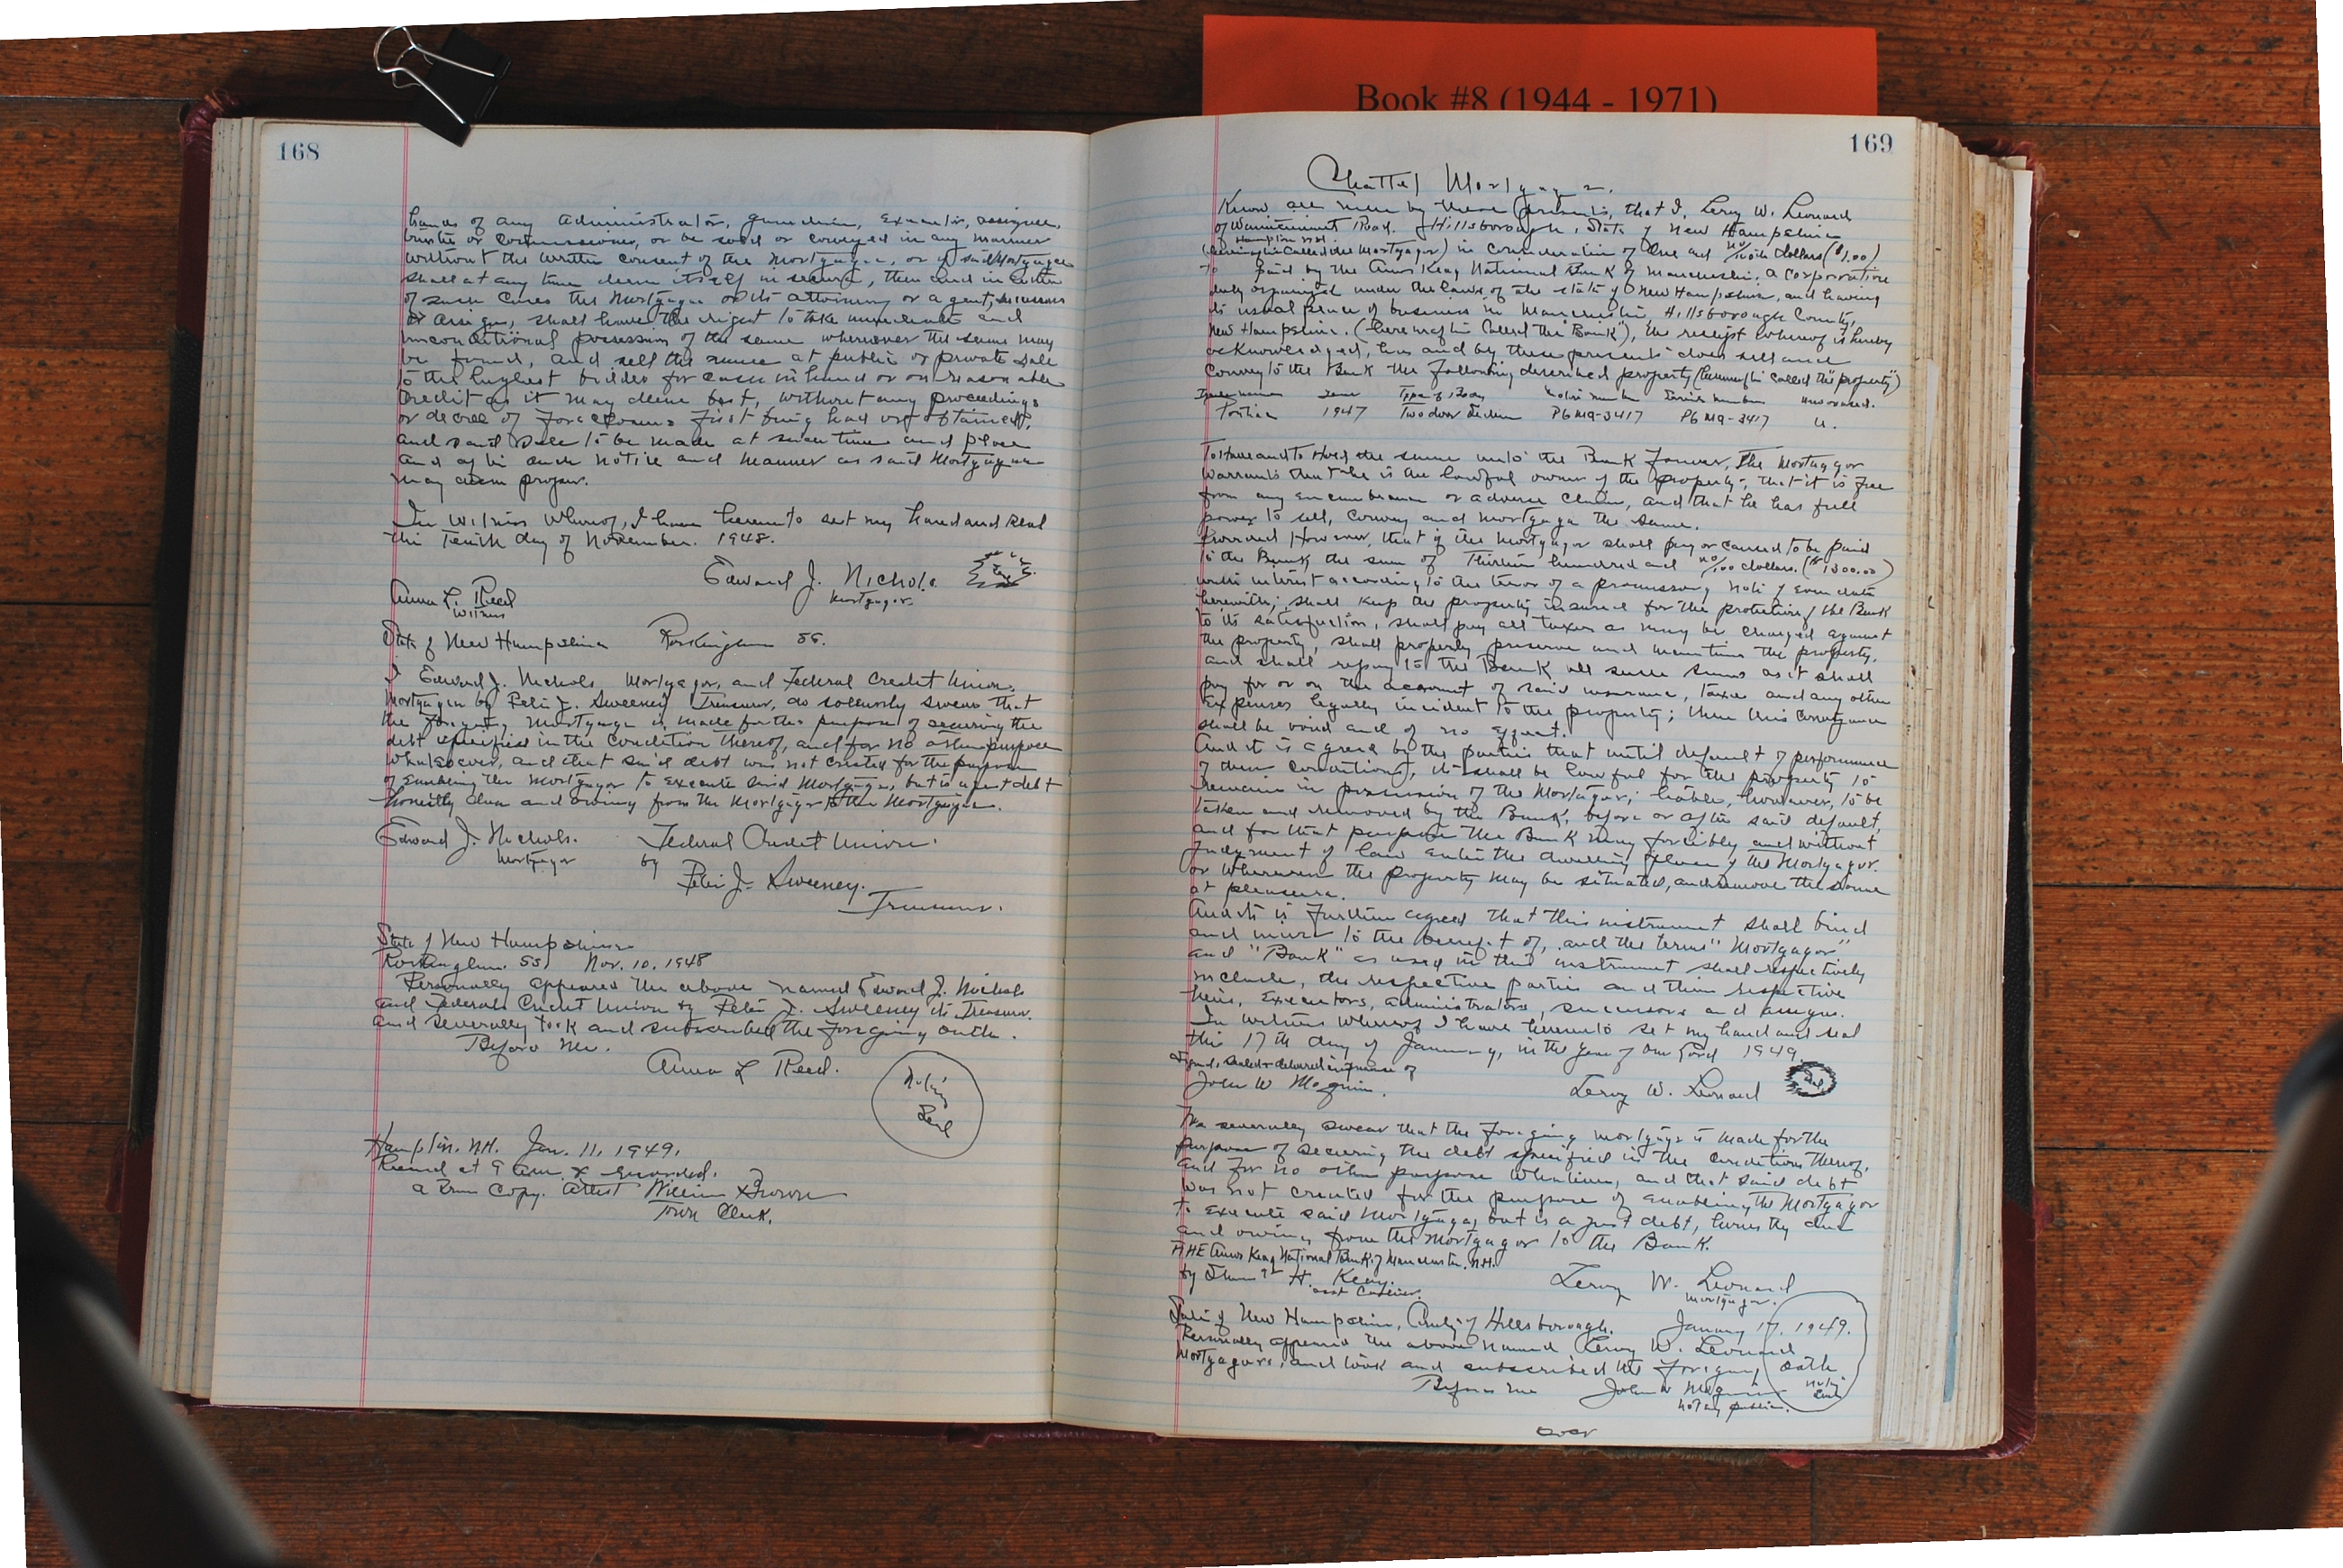 Book #8 (1944 - 1971)
168
hands of any administrator, guardian, executor, assignee,
trustee or commissioner, or be sold or conveyed in any manner
without the written consent of the Mortgagee, or if said Mortgagee
shall at any time deem itself insecure, then and in either
of such cases the Mortgagee or its attorney or agent, successors
or assigns, shall have the right to take immediate and
unconditional possession of the same wherever the same may
be found, and sell the same at public or private sale
to the highest bidder for cash in hand or on reasonable
credit as it may deem best, without any proceedings
or decree of foreclosure first being had or obtained,
and said sale to be made at such time and place
and after such notice and manner as said Mortgagee
may deem proper.
In Witness Whereof, I have hereunto set my hand and seal
this Tenth day of November. 1948.
Edward J. Nichols. Seal
Mortgagor
Anna L. Reed
Witness
State of New Hampshire Rockingham SS.
I Edward J. Nichols, Mortgagor, and Federal Credit Union,
Mortgagee by Peter J. Sweeney Treasurer, do solemnly swear that
the foregoing mortgage is made for the purpose of securing the
debt specified in the condition thereof, and for no other purpose
whatsoever, and that said debt was not created for the purpose
of enabling the Mortgagor to execute said Mortgage, but is a just debt
honestly due and owing from the Mortgagor to the Mortgagee.
Edward J. Nichols. Federal Credit Union.
Mortgagor by
Peter J. Sweeney.
Treasurer.
State of New Hampshire
Rockingham. SS. Nov. 10. 1948
Personally appeared the above named Edward J. Nichols
and Federal Credit Union by Peter J. Sweeney its Treasurer.
and severally took and subscribed the foregoing oath.
Before Me.
Anna L Reed.
Notary
Seal
Hampton. N.H. Jan. 11, 1949.
Received at 9 a.m. & recorded.
a True Copy. Attest William Brown
Town Clerk.
169
Chattel Mortgage.
Know all men by these presents, that I, Leroy W. Leonard
of Road. Hillsborough, State of New Hampshire
(hereinafter called the Mortgagor) in consideration of One and no/100 dollars ($1.00)
to paid by The Amoskeag National Bank of Manchester, a corporation
duly organized under the laws of the state of New Hampshire, and having
its usual place of business in Manchester, Hillsborough County,
New Hampshire. (hereinafter called the "Bank"), the receipt whereof is hereby
acknowledged, has and by these presents does sell and
convey to the Bank the following described property (hereinafter called the "property")
Trade name Year Type of Body Motor number Serial number New or used.
Pontiac 1947 Two door Sedan P6MA-3417 P6MA-3417 U.
To Have and to Hold the same unto the Bank forever, The Mortgagor
warrants that he is the lawful owner of the property, that it is free
from any encumbrance or adverse claim, and that he has full
power to sell, convey and mortgage the same.
Provided However, that if the Mortgagor shall pay or caused to be paid
to the Bank the sum of Thirteen hundred and no/100 dollars. ($1300.00)
with interest according to the tenor of a promissory note of even date
herewith; shall keep the property insured for the protection of the Bank
to its satisfaction, shall pay all taxes as may be charged against
the property, shall properly preserve and maintain the property.
and shall repay to the Bank all such sums as it shall
pay for or on the account of said insurance, taxes and any other
expenses legally incident to the property; then this conveyance
shall be void and of no effect.
And it is agreed by the parties that until default of performance
of these conditions, it shall be lawful for the property to
remain in possession of the Mortgagor; liable, however, to be
taken and removed by the Bank, before or after said default,
and for that purpose the Bank may forcibly and without
Judgment of law enter the dwelling place of the Mortgagor.
or wherever the property may be situated, and remove the same
at pleasure.
And it is further agreed that this instrument shall bind
and inure to the benefit of, and the terms "Mortgagor"
and "Bank" as used in this instrument shall respectively
include, the respective parties and their respective
heirs, executors, administrators, successors and assigns.
In witness Whereof I have hereunto set my hand and seal
this 17th day of January, in the year of our Lord 1949.
Signed, sealed & delivered in presence of
John W McGuire. Leroy W. Leonard Seal
We severally swear that the foregoing mortgage is made for the
purpose of securing the debt specified in the conditions thereof,
and for no other purpose whatever, and that said debt
was not created for the purpose of enabling the Mortgagor
to execute said Mortgage, but is a just debt, honestly due
and owing from the Mortgagor to the Bank.
THE Amoskeag National Bank of Manchester. N.H.
by H. Keay. Leroy W. Leonard
asst Cashier. Mortgagor.
State of New Hampshire, County of Hillsborough. January 17, 1949.
Personally appeared the above named Leroy W. Leonard
Mortgagors, and took and subscribed the foregoing oath
Before me John W McGuire Notary Seal
Notary public.
over